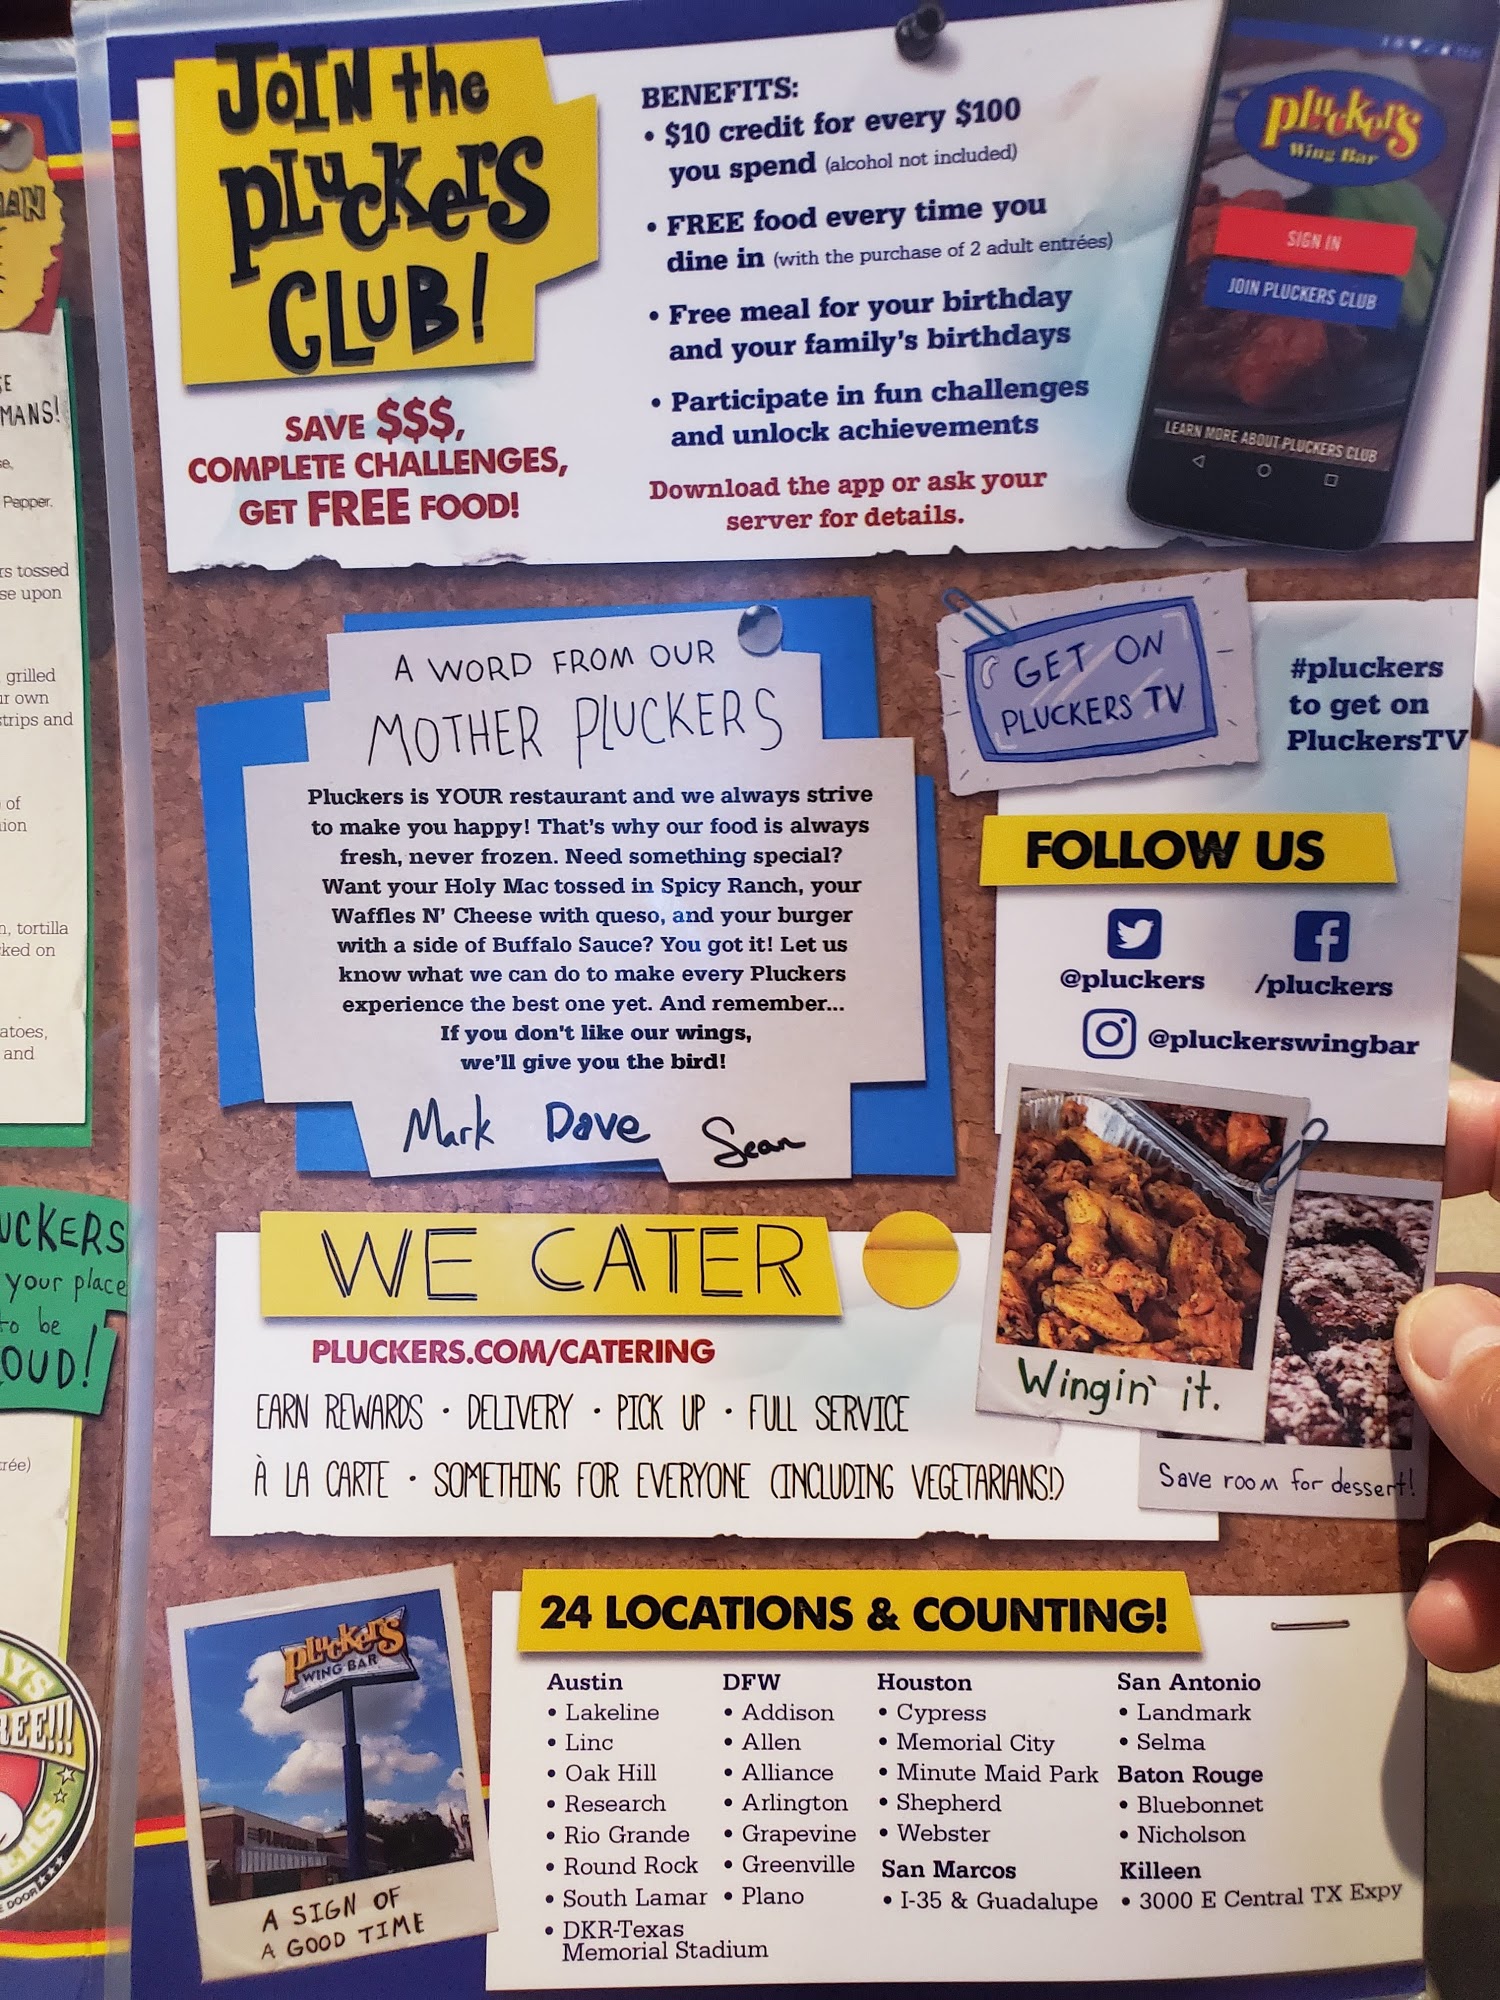 JOIN the
PLUCKERS
CLUB!
SAVE $$$,
COMPLETE CHALLENGES,
GET FREE FOOD!
BENEFITS:
• $10 credit for every $100
you spend (alcohol not included)
• FREE food every time you
dine in (with the purchase of 2 adult entrées)
• Free meal for your birthday
and your family's birthdays
• Participate in fun challenges
and unlock achievements
Download the app or ask your
server for details.
Pluckers
Wing Bar
SIGN IN
JOIN PLUCKERS CLUB
LEARN MORE ABOUT PLUCKERS CLUB
A WORD FROM OUR
MOTHER PLUCKERS
Pluckers is YOUR restaurant and we always strive
to make you happy! That's why our food is always
fresh, never frozen. Need something special?
Want your Holy Mac tossed in Spicy Ranch, your
Waffles N' Cheese with queso, and your burger
with a side of Buffalo Sauce? You got it! Let us
know what we can do to make every Pluckers
experience the best one yet. And remember...
If you don't like our wings,
we'll give you the bird!
Mark Dave Sean
GET ON
PLUCKERS TV
#pluckers
to get on
PluckersTV
FOLLOW US
@pluckers /pluckers
@pluckerswingbar
Wingin' it.
Save room for dessert!
WE CATER
PLUCKERS.COM/CATERING
EARN REWARDS • DELIVERY • PICK UP • FULL SERVICE
À LA CARTE • SOMETHING FOR EVERYONE (INCLUDING VEGETARIANS!)
PLUCKERS
WING BAR
A SIGN OF
A GOOD TIME
24 LOCATIONS & COUNTING!
Austin
• Lakeline
• Linc
• Oak Hill
• Research
• Rio Grande
• Round Rock
• South Lamar
• DKR-Texas
Memorial Stadium
DFW
• Addison
• Allen
• Alliance
• Arlington
• Grapevine
• Greenville
• Plano
Houston
• Cypress
• Memorial City
• Minute Maid Park
• Shepherd
• Webster
San Marcos
• I-35 & Guadalupe
San Antonio
• Landmark
• Selma
Baton Rouge
• Bluebonnet
• Nicholson
Killeen
• 3000 E Central TX Expy
MANS!
Pepper.
tossed
upon
grilled
own
strips and
of
tortilla
on
and
your place
to be